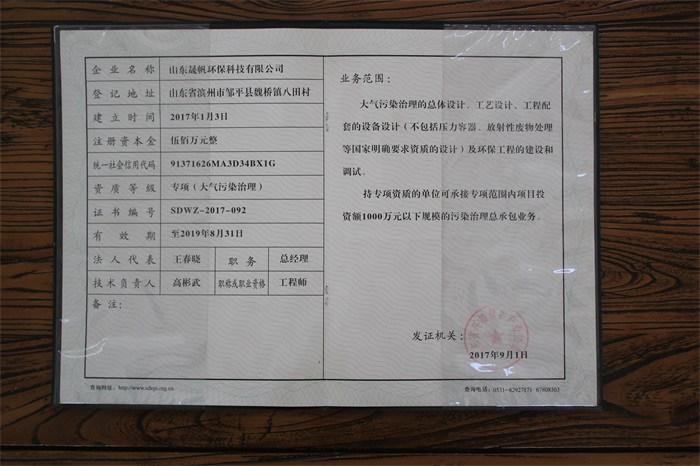 企业名称 山东晟帆环保科技有限公司
登记地址 山东省滨州市邹平县魏桥镇八田村
建立时间 2017年1月3日
注册资本金 伍佰万元整
统一社会信用代码 91371626MA3D34BX1G
资质等级 专项（大气污染治理）
证书编号 SDWZ-2017-092
有效期 至2019年8月31日
法人代表 王春晓 职务 总经理
技术负责人 高彬武 职称或职业资格 工程师
备注：
查询网址：http://www.sdepi.org.cn
业务范围：
大气污染治理的总体设计、工艺设计、工程配
套的设备设计（不包括压力容器、放射性废物处理
等国家明确要求资质的设计）及环保工程的建设和
调试。
持专项资质的单位可承接专项范围内项目投
资额1000万元以下规模的污染治理总承包业务。
发证机关：
2017年9月1日
查询电话：0531-82927171 67808303